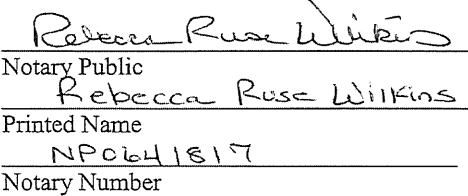 Rebecca Ruse Wilkins
Notary Public
Rebecca Ruse Wilkins
Printed Name
NP0641817
Notary Number